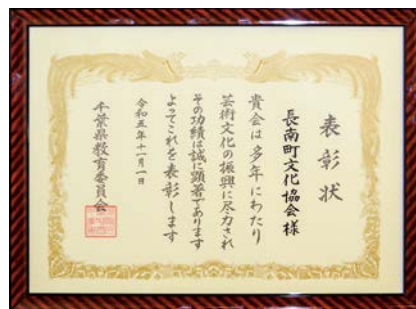 表彰状
長南町文化協会様
貴会は多年にわたり
芸術文化の振興に尽力され
その功績は誠に顕著であります
よってこれを表彰します
令和五年十一月一日
千葉県教育委員会